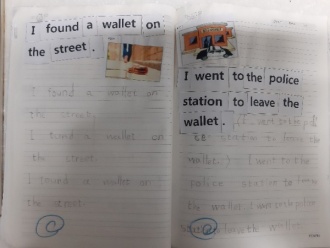 I found a wallet on
the street.
I found a wallet on
the street.
I found a wallet on
the street.
I found a wallet on
the street.
I went to the police
station to leave the
wallet.
station to leave the
wallet.) I went to the
police station to
the wallet